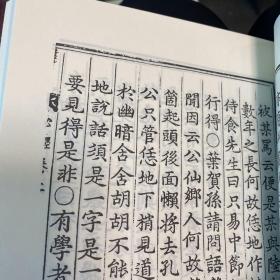 被某罵云便是某與
數年之長何故恁地作
侍食先生曰只易中節
行得○葉賀孫請問語
閒因云公仙鄉人何故
箇起頭後面懶將去孔
公只管恁地下稍見道
於幽暗含含胡胡不能
地說話須是一字是一
要見得是非○有學者